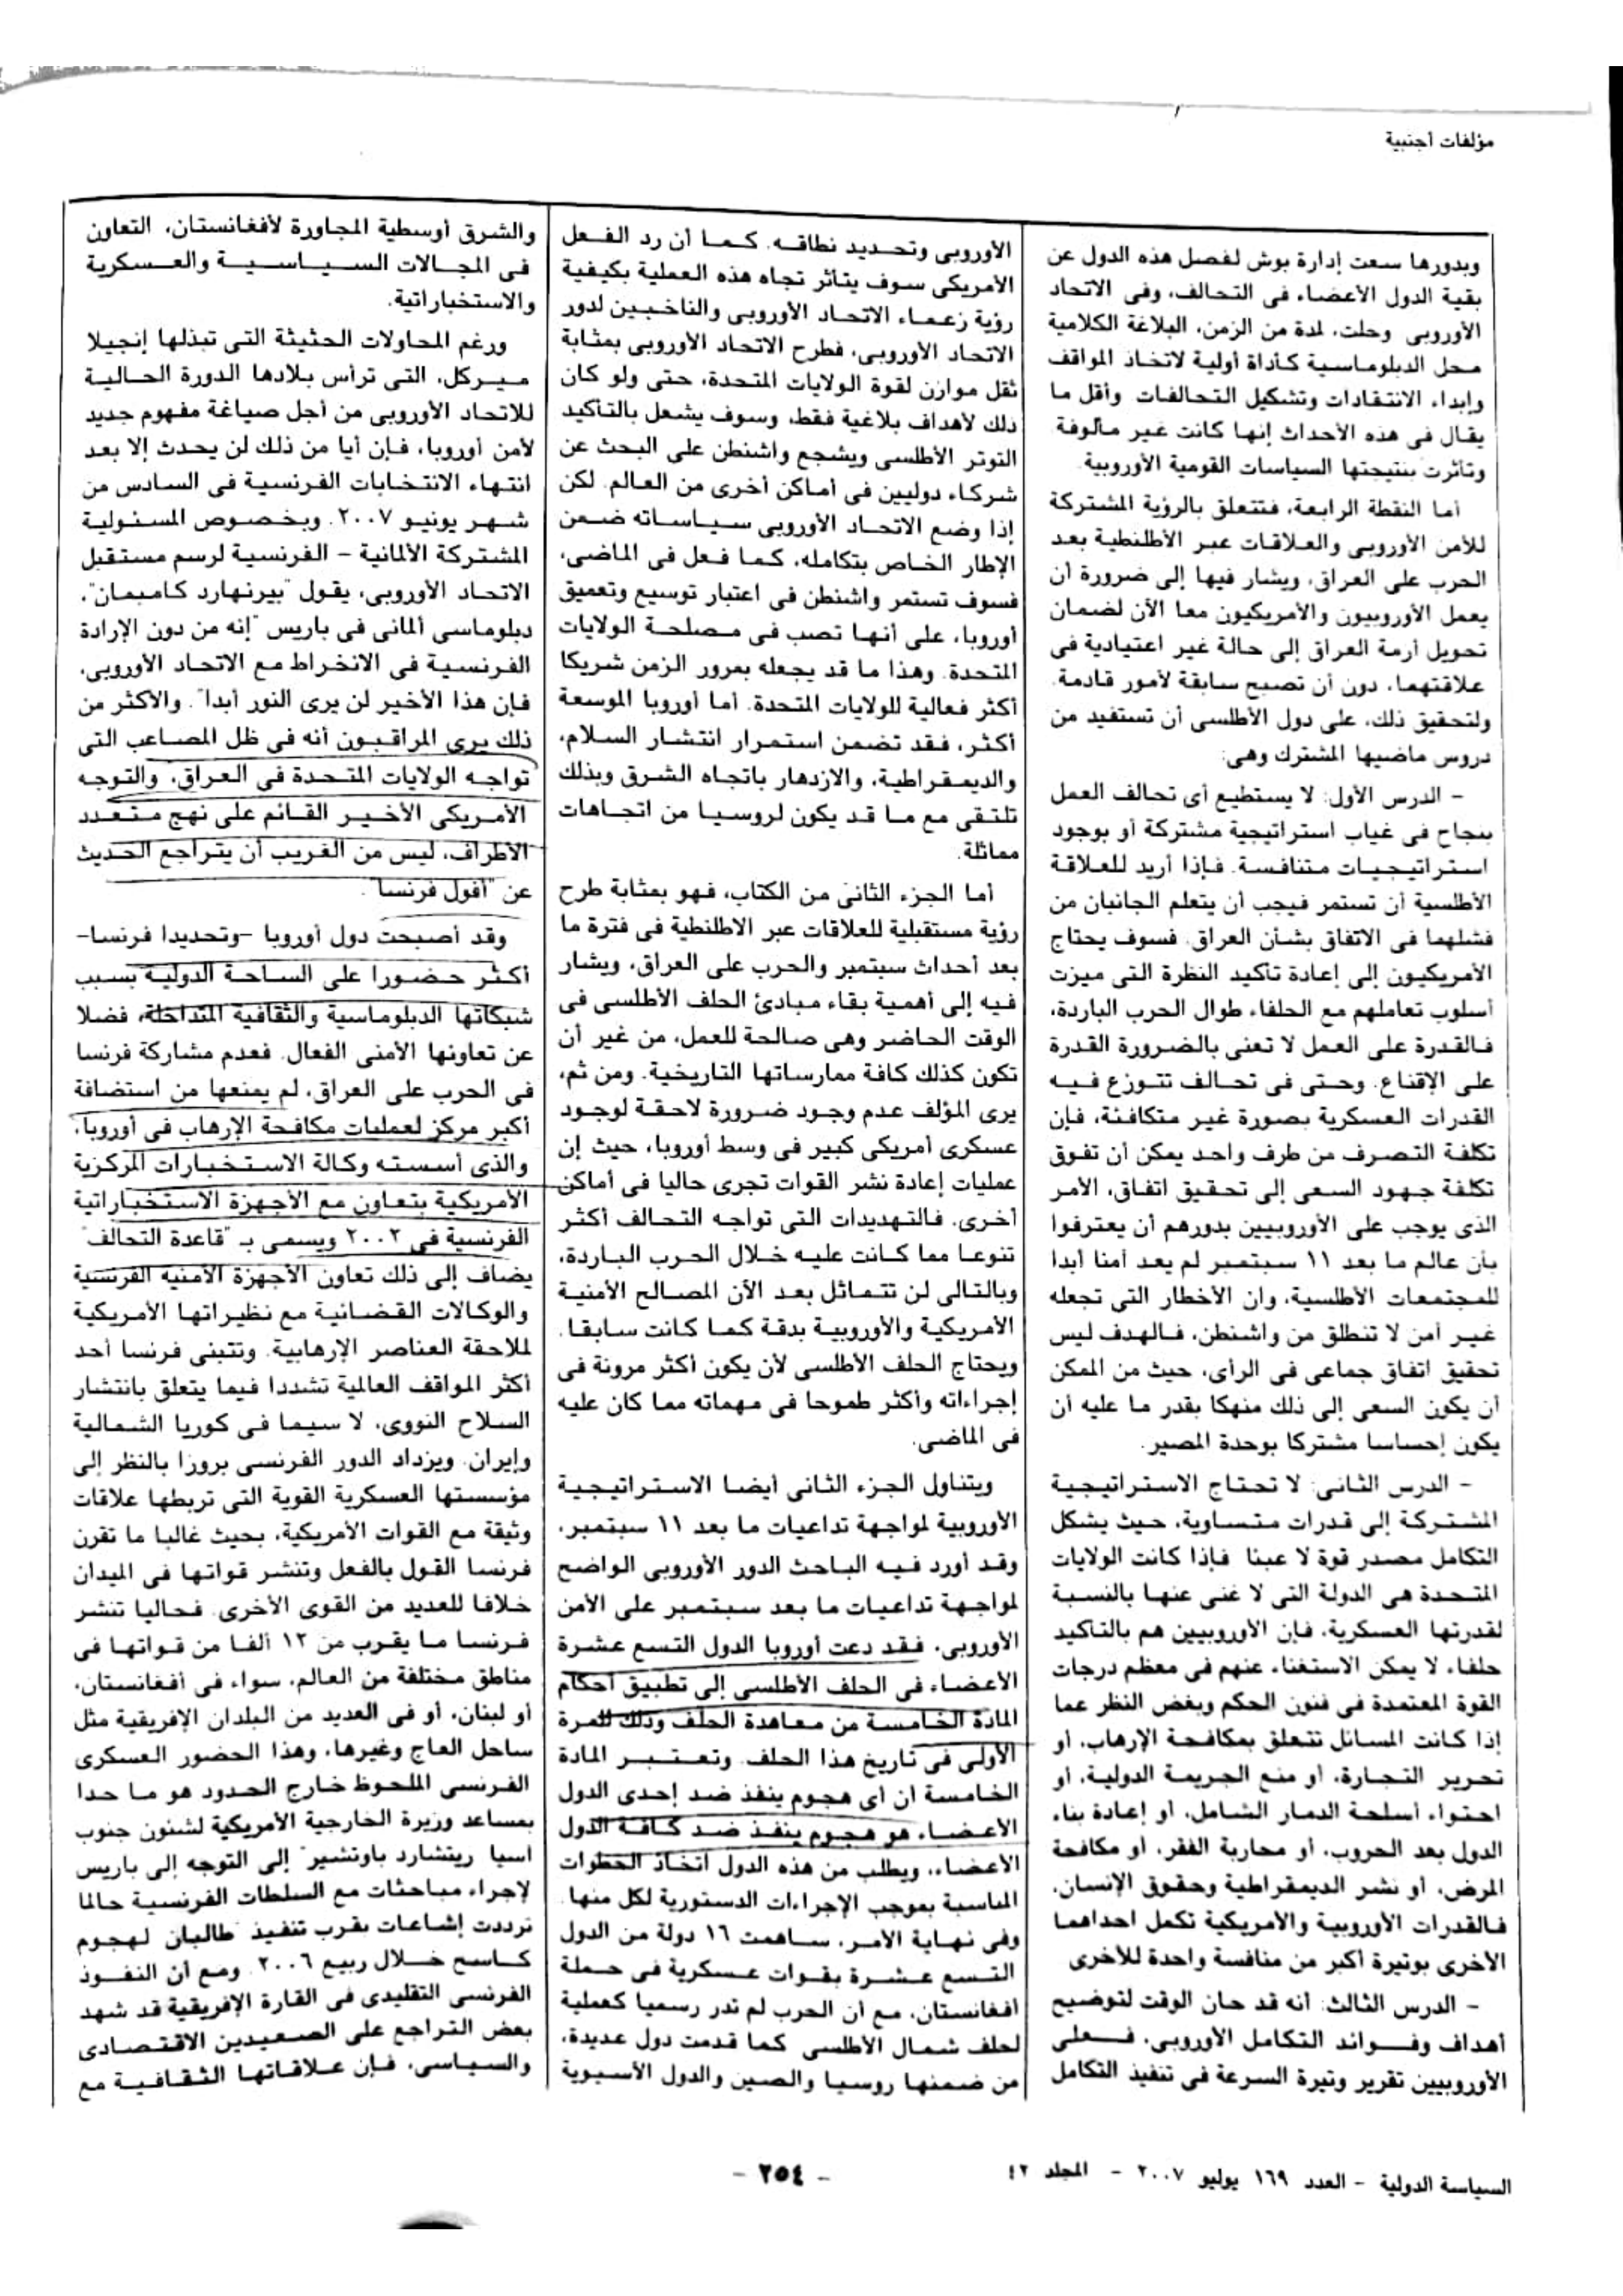 مؤلفات أجنبية
وبدورها سعت إدارة بوش لفصل هذه الدول عن
بقية الدول الأعضاء فى التحالف، وفى الاتحاد
الأوروبى وحلت، لمدة من الزمن، البلاغة الكلامية
محل الدبلوماسية كأداة أولية لاتخاذ المواقف
وإبداء الانتقادات وتشكيل التحالفات وأقل ما
يقال فى هذه الأحداث إنها كانت غير مألوفة
وتأثرت بنتيجتها السياسات القومية الأوروبية.
أما النقطة الرابعة، فتتعلق بالرؤية المشتركة
للأمن الأوروبى والعلاقات عبر الأطلنطية بعد
الحرب على العراق، ويشار فيها إلى ضرورة أن
يعمل الأوروبيون والأمريكيون معا الآن لضمان
تحويل أزمة العراق إلى حالة غير اعتيادية فى
علاقتهما، دون أن تصبح سابقة لأمور قادمة.
ولتحقيق ذلك، على دول الأطلسى أن تستفيد من
دروس ماضيها المشترك وهى:
- الدرس الأول: لا يستطيع أى تحالف العمل
بنجاح فى غياب استراتيجية مشتركة أو بوجود
استراتيجيات متنافسة. فإذا أريد للعلاقة
الأطلسية أن تستمر فيجب أن يتعلم الجانبان من
فشلهما فى الاتفاق بشأن العراق. فسوف يحتاج
الأمريكيون إلى إعادة تأكيد النظرة التى ميزت
أسلوب تعاملهم مع الحلفاء طوال الحرب الباردة،
فالقدرة على العمل لا تعنى بالضرورة القدرة
على الإقناع. وحتى فى تحالف تتوزع فيه
القدرات العسكرية بصورة غير متكافئة، فإن
تكلفة التصرف من طرف واحد يمكن أن تفوق
تكلفة جهود السعى إلى تحقيق اتفاق، الأمر
الذى يوجب على الأوروبيين بدورهم أن يعترفوا
بأن عالم ما بعد ١١ سبتمبر لم يعد أمنا أبدا
للمجتمعات الأطلسية، وأن الأخطار التى تجعله
غير أمن لا تنطلق من واشنطن، فالهدف ليس
تحقيق اتفاق جماعى فى الرأى، حيث من الممكن
أن يكون السعى إلى ذلك منهكا بقدر ما عليه أن
يكون إحساسا مشتركا بوحدة المصير.
- الدرس الثانى: لا تحتاج الاستراتيجية
المشتركة إلى قدرات متساوية، حيث يشكل
التكامل مصدر قوة لا عبئا فإذا كانت الولايات
المتحدة هى الدولة التى لا غنى عنها بالنسبة
لقدرتها العسكرية، فإن الأوروبيين هم بالتأكيد
حلفاء لا يمكن الاستغناء عنهم فى معظم درجات
القوة المعتمدة فى فنون الحكم وبغض النظر عما
إذا كانت المسائل تتعلق بمكافحة الإرهاب، أو
تحرير التجارة، أو منع الجريمة الدولية، أو
احتواء أسلحة الدمار الشامل، أو إعادة بناء
الدول بعد الحروب، أو محاربة الفقر، أو مكافحة
المرض، أو نشر الديمقراطية وحقوق الإنسان،
فالقدرات الأوروبية والأمريكية تكمل احداهما
الأخرى بوتيرة أكبر من منافسة واحدة للأخرى
- الدرس الثالث: أنه قد حان الوقت لتوضيح
أهداف وفوائد التكامل الأوروبى، فعلى
الأوروبيين تقرير وتيرة السرعة فى تنفيذ التكامل
الأوروبى وتحديد نطاقه. كما أن رد الفعل
الأمريكى سوف يتأثر تجاه هذه العملية بكيفية
رؤية زعماء الاتحاد الأوروبى والناخبين لدور
الاتحاد الأوروبى، فطرح الاتحاد الأوروبى بمثابة
ثقل موازن لقوة الولايات المتحدة، حتى ولو كان
ذلك لأهداف بلاغية فقط، وسوف يشعل بالتأكيد
التوتر الأطلسى ويشجع واشنطن على البحث عن
شركاء دوليين فى أماكن أخرى من العالم. لكن
إذا وضع الاتحاد الأوروبى سياساته ضمن
الإطار الخاص بتكامله، كما فعل فى الماضى،
فسوف تستمر واشنطن فى اعتبار توسيع وتعميق
أوروبا، على أنها تصب فى مصلحة الولايات
المتحدة. وهذا ما قد يجعله بمرور الزمن شريكا
أكثر فعالية للولايات المتحدة. أما أوروبا الموسعة
أكثر، فقد تضمن استمرار انتشار السلام،
والديمقراطية، والازدهار باتجاه الشرق وبذلك
تلتقى مع ما قد يكون لروسيا من اتجاهات
مماثلة.
أما الجزء الثانى من الكتاب، فهو بمثابة طرح
رؤية مستقبلية للعلاقات عبر الاطلنطية فى فترة ما
بعد أحداث سبتمبر والحرب على العراق، ويشار
فيه إلى أهمية بقاء مبادئ الحلف الأطلسى فى
الوقت الحاضر وهى صالحة للعمل، من غير أن
تكون كذلك كافة ممارساتها التاريخية. ومن ثم،
يرى المؤلف عدم وجود ضرورة لاحقة لوجود
عسكرى أمريكى كبير فى وسط أوروبا، حيث إن
عمليات إعادة نشر القوات تجرى حاليا فى أماكن
أخرى. فالتهديدات التى تواجه التحالف أكثر
تنوعا مما كانت عليه خلال الحرب الباردة،
وبالتالى لن تتماثل بعد الآن المصالح الأمنية
الأمريكية والأوروبية بدقة كما كانت سابقا.
ويحتاج الحلف الأطلسى لأن يكون أكثر مرونة فى
إجراءاته وأكثر طموحا فى مهماته مما كان عليه
فى الماضى.
ويتناول الجزء الثانى أيضا الاستراتيجية
الأوروبية لمواجهة تداعيات ما بعد ١١ سبتمبر،
وقد أورد فيه الباحث الدور الأوروبى الواضح
لمواجهة تداعيات ما بعد سبتمبر على الأمن
الأوروبى. فقد دعت أوروبا الدول التسع عشرة
الأعضاء فى الحلف الأطلسى إلى تطبيق أحكام
المادة الخامسة من معاهدة الحلف وذلك للمرة
الأولى فى تاريخ هذا الحلف. وتعتبر المادة
الخامسة ان أى هجوم ينفذ ضد إحدى الدول
الأعضاء، هو هجوم ينفذ ضد كافة الدول
الأعضاء، ويطلب من هذه الدول اتخاذ الخطوات
المناسبة بموجب الإجراءات الدستورية لكل منها.
وفى نهاية الأمر، ساهمت ١٦ دولة من الدول
التسع عشرة بقوات عسكرية فى حملة
أفغانستان، مع أن الحرب لم تدر رسميا كعملية
لحلف شمال الأطلسى كما قدمت دول عديدة،
من ضمنها روسيا والصين والدول الأسيوية
والشرق أوسطية المجاورة لأفغانستان، التعاون
فى المجالات السياسية والعسكرية
والاستخباراتية.
ورغم المحاولات الحثيثة التى تبذلها إنجيلا
ميركل، التى ترأس بلادها الدورة الحالية
للاتحاد الأوروبى من أجل صياغة مفهوم جديد
لأمن أوروبا، فإن أيا من ذلك لن يحدث إلا بعد
انتهاء الانتخابات الفرنسية فى السادس من
شهر يونيو ٢٠٠٧. وبخصوص المسئولية
المشتركة الألمانية - الفرنسية لرسم مستقبل
الاتحاد الأوروبى، يقول "بيرنهارد كامبمان"،
دبلوماسى ألمانى فى باريس "إنه من دون الإرادة
الفرنسية فى الانخراط مع الاتحاد الأوروبى،
فإن هذا الأخير لن يرى النور أبدا". والأكثر من
ذلك يرى المراقبون أنه فى ظل المصاعب التى
تواجه الولايات المتحدة فى العراق، والتوجه
الأمريكى الأخير القائم على نهج متعدد
الأطراف، ليس من الغريب أن يتراجع الحديث
عن "أفول فرنسا".
وقد أصبحت دول أوروبا -وتحديدا فرنسا-
أكثر حضورا على الساحة الدولية بسبب
شبكاتها الدبلوماسية والثقافية المتداخلة، فضلا
عن تعاونها الأمنى الفعال. فعدم مشاركة فرنسا
فى الحرب على العراق، لم يمنعها من استضافة
أكبر مركز لعمليات مكافحة الإرهاب فى أوروبا،
والذى أسسته وكالة الاستخبارات المركزية
الأمريكية بتعاون مع الأجهزة الاستخباراتية
الفرنسية فى ٢٠٠٢ ويسمى بـ "قاعدة التحالف"
يضاف إلى ذلك تعاون الأجهزة الأمنية الفرنسية
والوكالات القضائية مع نظيراتها الأمريكية
لملاحقة العناصر الإرهابية. وتتبنى فرنسا أحد
أكثر المواقف العالمية تشددا فيما يتعلق بانتشار
السلاح النووى، لا سيما فى كوريا الشمالية
وإيران. ويزداد الدور الفرنسى بروزا بالنظر إلى
مؤسستها العسكرية القوية التى تربطها علاقات
وثيقة مع القوات الأمريكية، بحيث غالبا ما تقرن
فرنسا القول بالفعل وتنشر قواتها فى الميدان
خلافا للعديد من القوى الأخرى. فحاليا تنشر
فرنسا ما يقرب من ١٢ ألفا من قواتها فى
مناطق مختلفة من العالم، سواء فى أفغانستان،
أو لبنان، أو فى العديد من البلدان الإفريقية مثل
ساحل العاج وغيرها، وهذا الحضور العسكرى
الفرنسى الملحوظ خارج الحدود هو ما حدا
بمساعد وزيرة الخارجية الأمريكية لشئون جنوب
أسيا ريتشارد باوتشير" إلى التوجه إلى باريس
لإجراء مباحثات مع السلطات الفرنسية حالما
ترددت إشاعات بقرب تنفيذ طالبان لهجوم
كاسح خلال ربيع ٢٠٠٦. ومع أن النفوذ
الفرنسى التقليدى فى القارة الإفريقية قد شهد
بعض التراجع على الصعيدين الاقتصادى
والسياسى، فإن علاقاتها الثقافية مع
السياسة الدولية - العدد ١٦٩ يوليو ٢٠٠٧ - المجلد ٤٢
- ٢٥٤ -